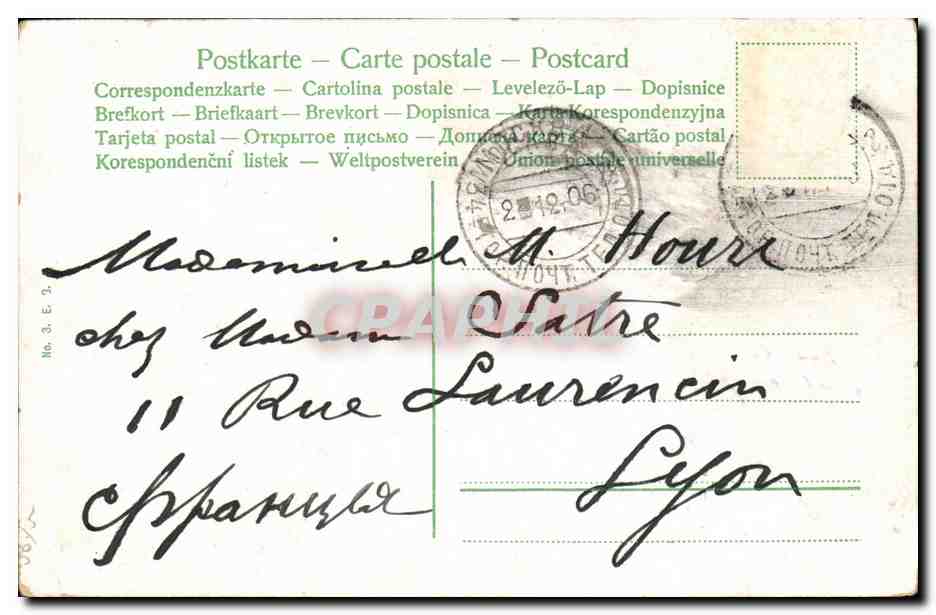 Postkarte – Carte postale – Postcard
Correspondenzkarte – Cartolina postale – Levelező-Lap – Dopisnice
Brefkort – Briefkaart – Brevkort – Dopisnica – Karta Korespondenzyjna
Tarjeta postal – Открытое письмо – Дописна карта – Cartão postal
Korespondenční listek – Weltpostverein – Union postale universelle
2 12.06
ПОЧТ. ТЕЛ. ПОЧТ. ТЕЛ. ОТД.
Mademoiselle M. Hours
chez Madam
11 Rue Laurencin
Lyon
Франція
No. 3. E. J.
CPAPHIL